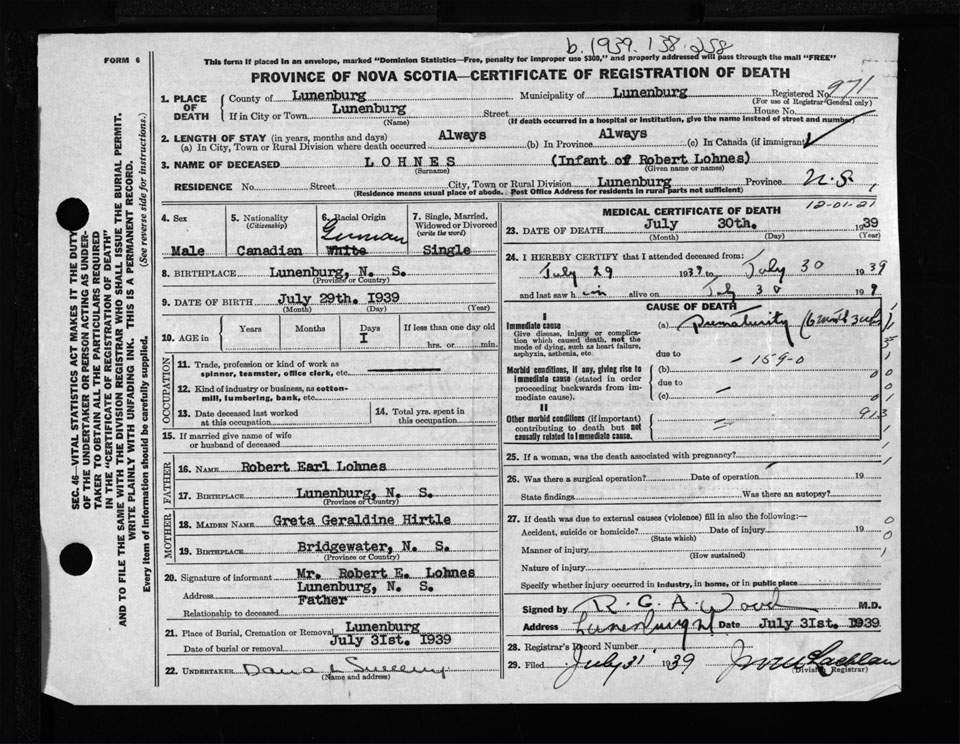 b. 1939. 138. 258
FORM 6
This form if placed in an envelope, marked "Dominion Statistics—Free, penalty for improper use $300," and properly addressed will pass through the mail "FREE"
PROVINCE OF NOVA SCOTIA—CERTIFICATE OF REGISTRATION OF DEATH
SEC. 46—VITAL STATISTICS ACT MAKES IT THE DUTY
OF THE UNDERTAKER OR PERSON ACTING AS UNDER-
TAKER TO OBTAIN ALL THE PARTICULARS REQUIRED
IN THE "CERTIFICATE OF REGISTRATION OF DEATH"
AND TO FILE THE SAME WITH THE DIVISION REGISTRAR WHO SHALL ISSUE THE BURIAL PERMIT.
WRITE PLAINLY WITH UNFADING INK. THIS IS A PERMANENT RECORD.
Every item of information should be carefully supplied. (See reverse side for instructions.)
1. PLACE OF DEATH
County of Lunenburg Municipality of Lunenburg Registered No. 971
(For use of Registrar General only)
If in City or Town Lunenburg Street House No.
(Name) (If death occurred in a hospital or institution, give the name instead of street and number)
2. LENGTH OF STAY (in years, months and days) Always Always
(a) In City, Town or Rural Division where death occurred (b) In Province (c) In Canada (if immigrant)
3. NAME OF DECEASED LOHNES (Infant of Robert Lohnes)
(Surname) (Given name or names)
RESIDENCE No. Street City, Town or Rural Division Lunenburg Province N.S.
(Residence means usual place of abode. Post Office Address for residents in rural parts not sufficient)
4. Sex
Male
5. Nationality
(Citizenship)
Canadian
6. Racial Origin
German
White
7. Single, Married,
Widowed or Divorced
(write the word)
Single
8. BIRTHPLACE Lunenburg, N. S.
(Province or Country)
9. DATE OF BIRTH July 29th. 1939
(Month) (Day) (Year)
10. AGE in Years Months Days If less than one day old
I hrs. or min.
OCCUPATION
11. Trade, profession or kind of work as
spinner, teamster, office clerk, etc.
12. Kind of industry or business, as cotton-
mill, lumbering, bank, etc.
13. Date deceased last worked
at this occupation
14. Total yrs. spent in
this occupation
15. If married give name of wife
or husband of deceased
FATHER
16. NAME Robert Earl Lohnes
17. BIRTHPLACE Lunenburg, N. S.
(Province or Country)
MOTHER
18. MAIDEN NAME Greta Geraldine Hirtle
19. BIRTHPLACE Bridgewater, N. S.
(Province or Country)
20. Signature of informant Mr. Robert E. Lohnes
Address Lunenburg, N. S.
Relationship to deceased Father
21. Place of Burial, Cremation or Removal Lunenburg
Date of burial or removal July 31st. 1939
22. UNDERTAKER
(Name and address)
MEDICAL CERTIFICATE OF DEATH
12-01-21
23. DATE OF DEATH July 30th. 1939
(Month) (Day) (Year)
24. I HEREBY CERTIFY that I attended deceased from:
July 29 1939 to July 30 1939
and last saw h im alive on July 30 199
CAUSE OF DEATH
I
Immediate cause
Give disease, injury or complica-
tion which caused death, not the
mode of dying, such as heart failure,
asphyxia, asthenia, etc.
(a) Prematurity
due to
159-0
Morbid conditions, if any, giving rise to
immediate cause (stated in order
proceeding backwards from im-
mediate cause).
(b)
due to
(c)
II
Other morbid conditions (if important)
contributing to death but not
causally related to immediate cause.
913
25. If a woman, was the death associated with pregnancy?
26. Was there a surgical operation? Date of operation 19
State findings Was there an autopsy?
27. If death was due to external causes (violence) fill in also the following:—
Accident, suicide or homicide? Date of injury 19
(State which)
Manner of injury
(How sustained)
Nature of injury
Specify whether injury occurred in industry, in home, or in public place
Signed by R. G. A. Wood M.D.
Address Lunenburg Date July 31st. 1939
28. Registrar's Record Number
29. Filed July 31, 1939
(Division Registrar)